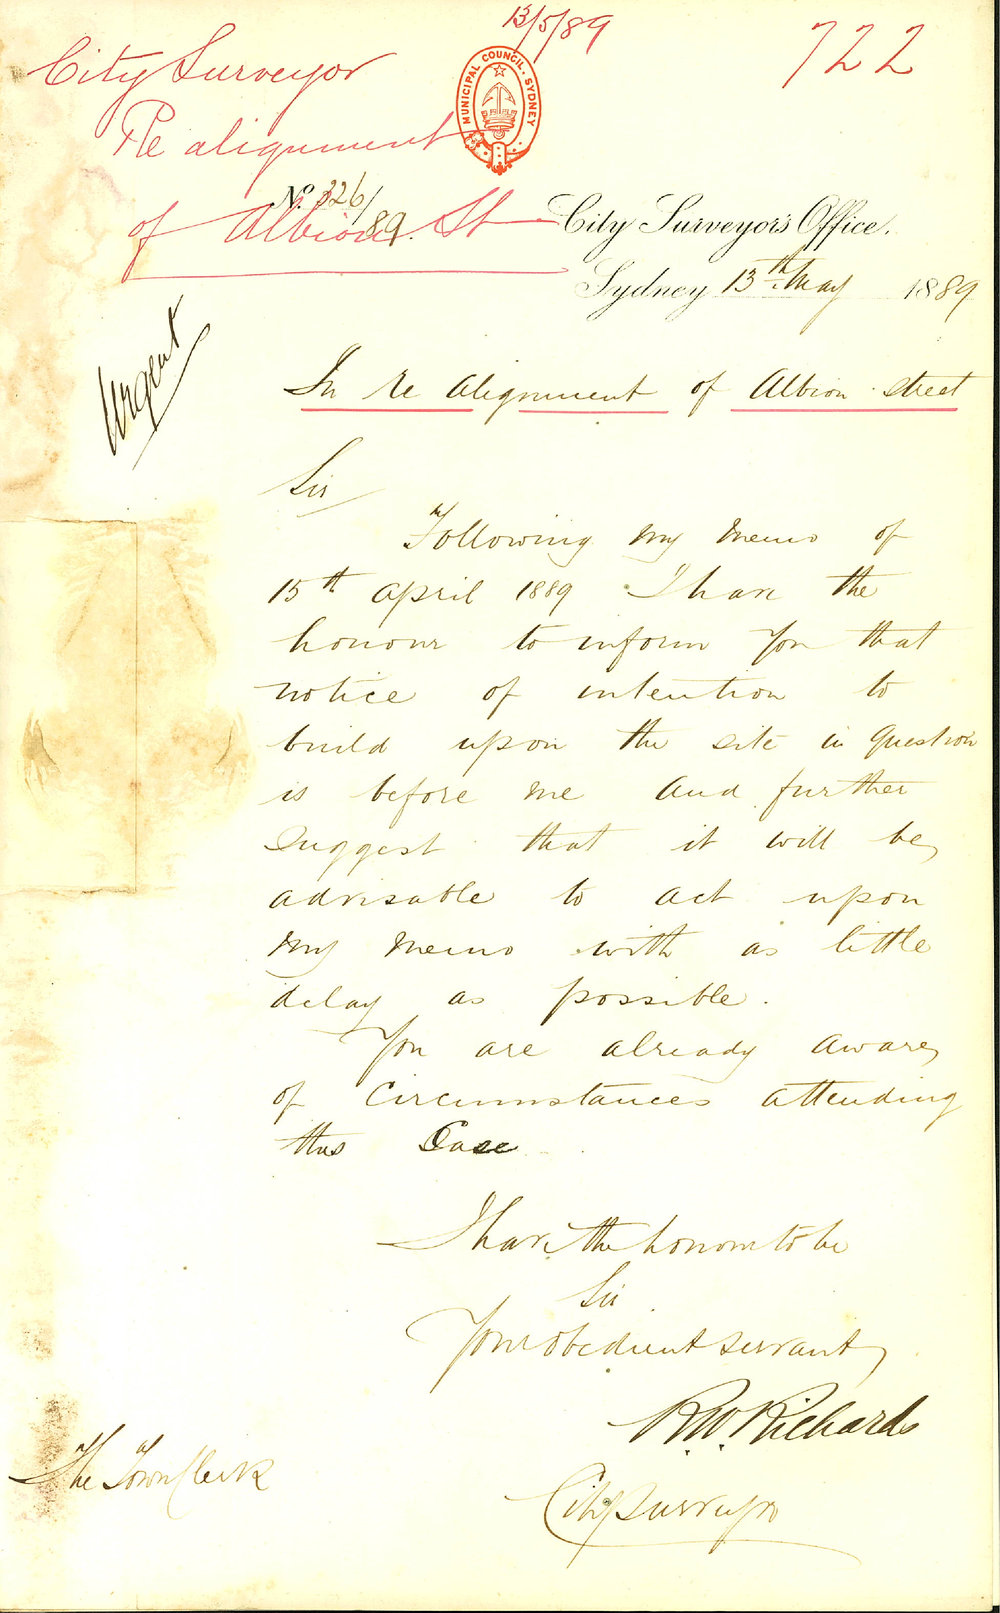 13/5/89
722
City Surveyor
Re alignment
of Albion St
MUNICIPAL COUNCIL. SYDNEY
No. 326/89.
City Surveyor's Office.
Sydney 13th May 1889
Urgent
In re alignment of Albion street
Sir
Following my memo of
15th April 1889 I have the
honour to inform you that
notice of intention to
build upon the site in question
is before me and further
suggest that it will be
advisable to act upon
my memo with as little
delay as possible.
You are already aware
of circumstances attending
this Case
I have the honour to be
Sir
Your obedient servant
R.W. Richards
City Surveyor
The Town Clerk